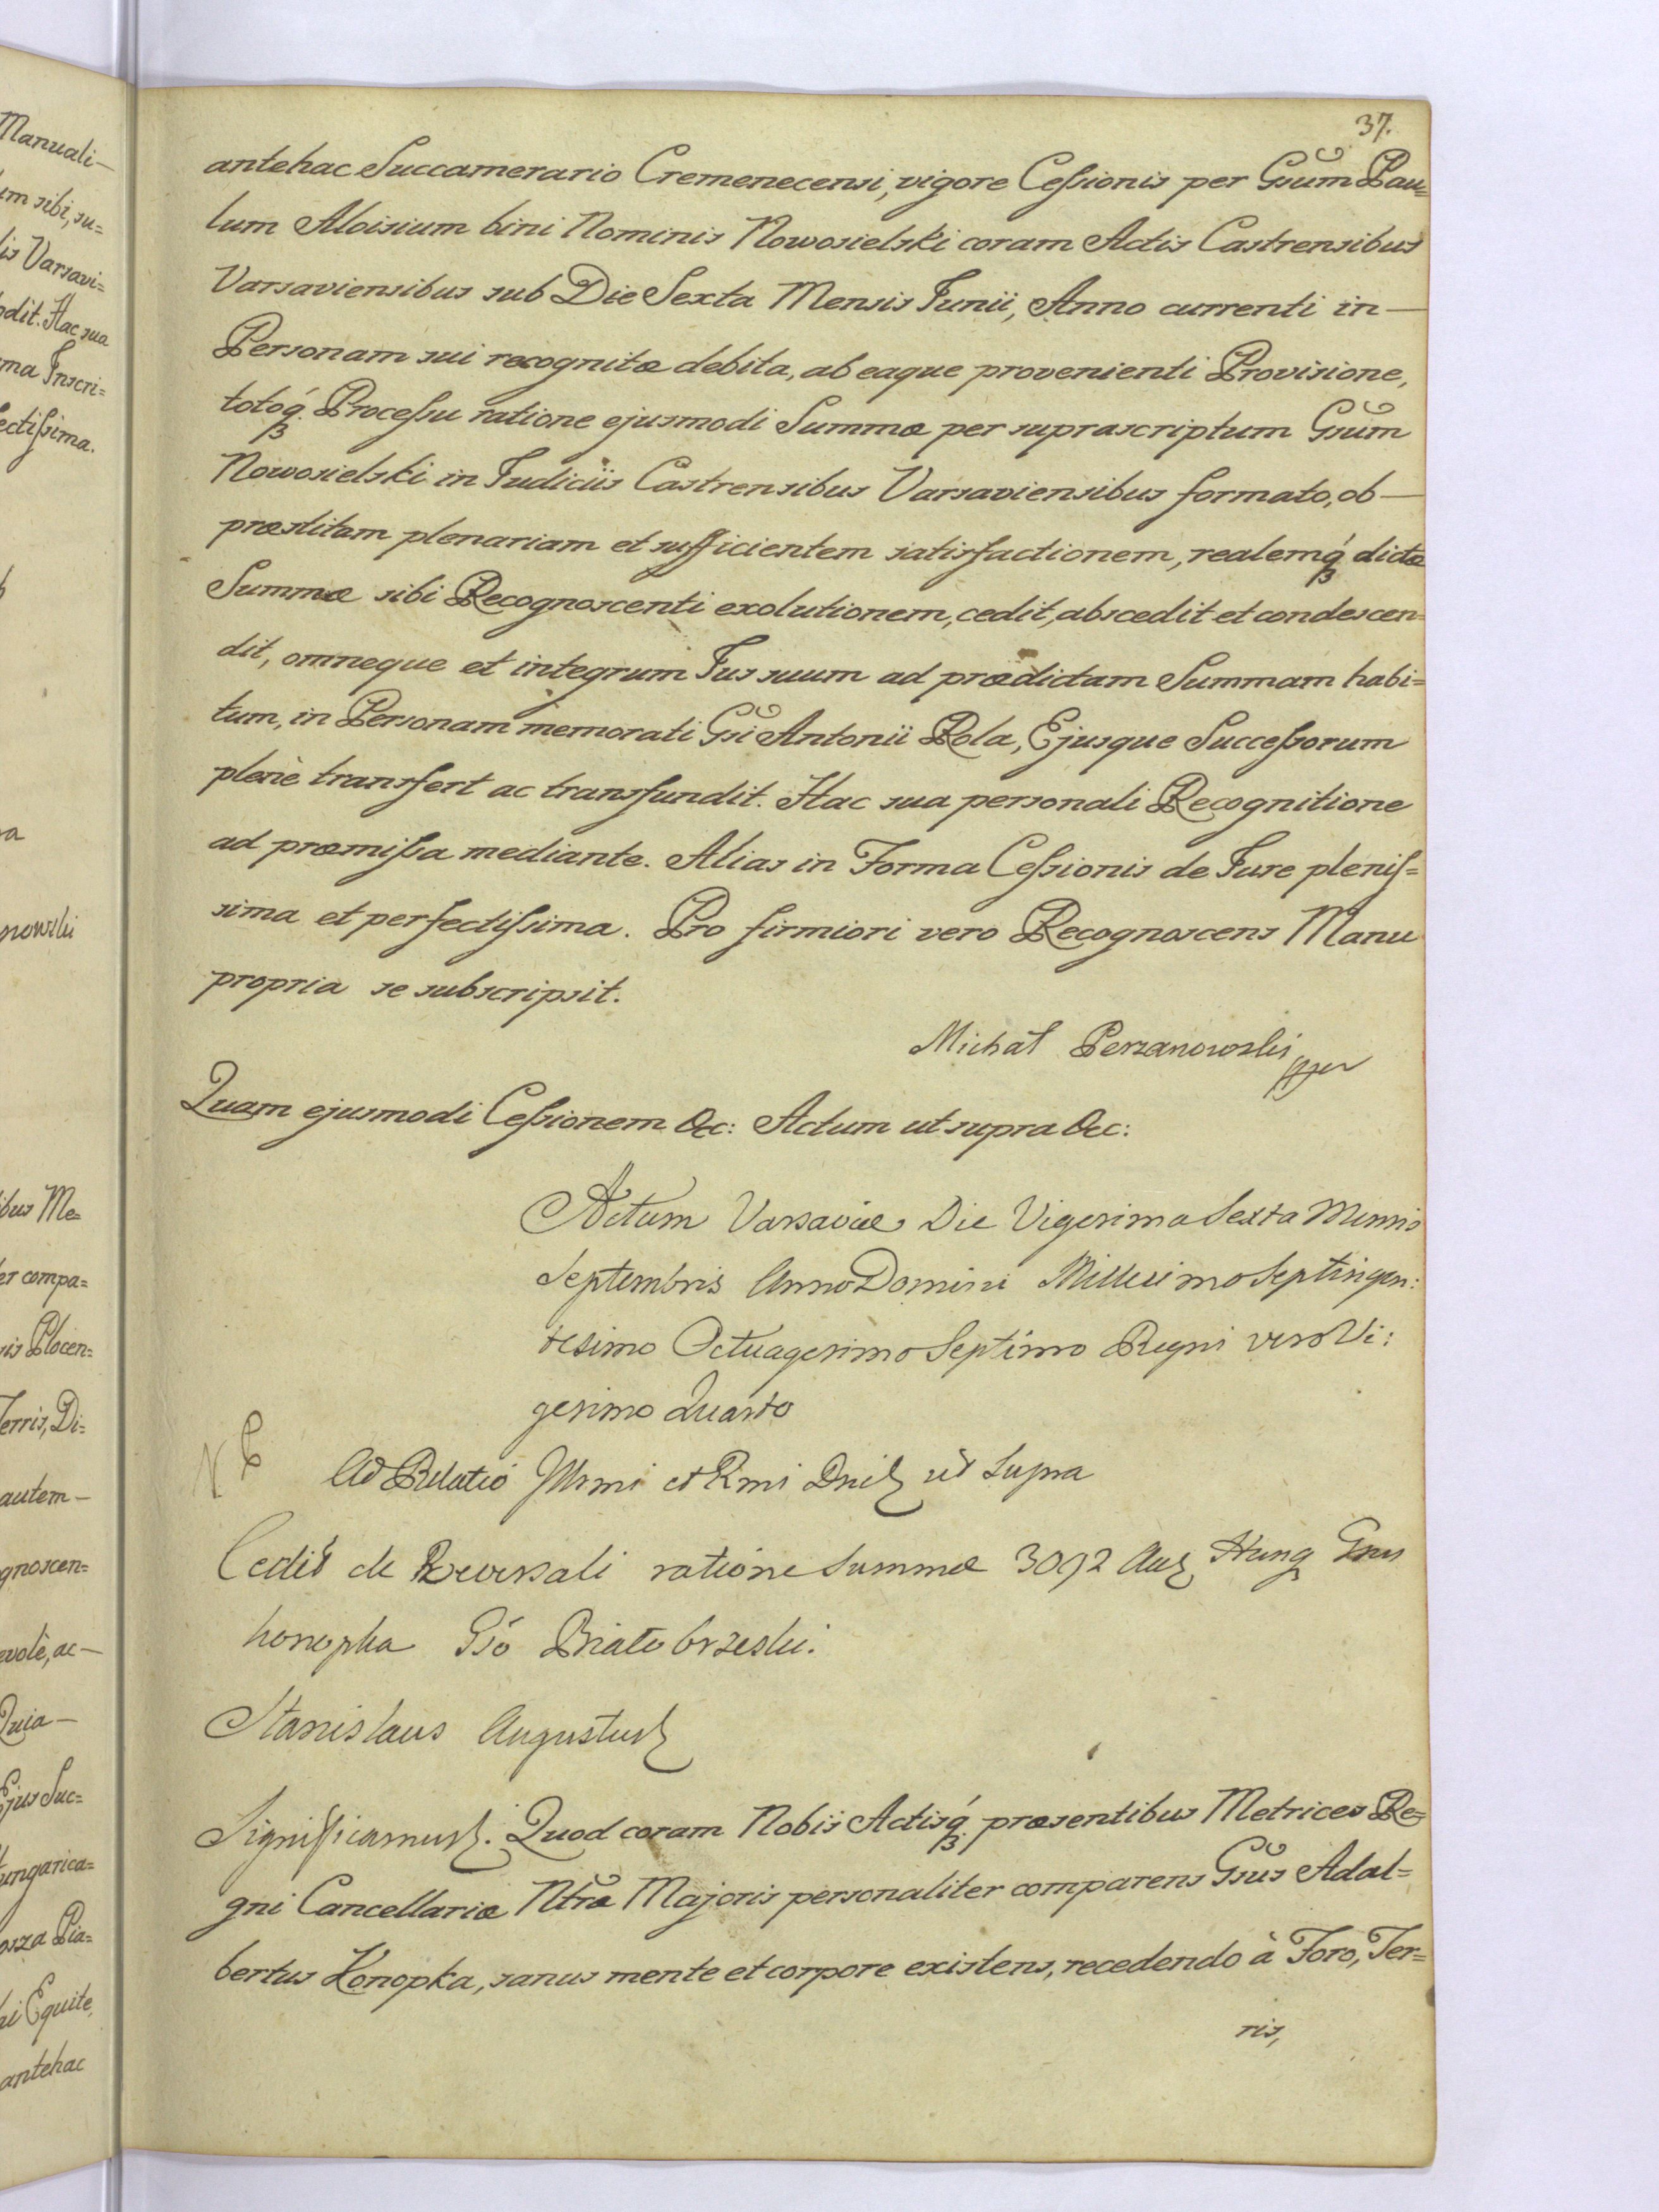 37.
antehac Succamerario Cremenecensi, vigore Cessionis per Gsum Pau=
lum Aloisium bini Nominis Nowosielski coram Actis Castrensibus
Varsaviensibus sub Die Sexta Mensis Junii, Anno currenti in —
Personam sui recognitæ debita, ab eaque provenienti Provisione,
totoq́ꝫ Processu ratione ejusmodi Summæ per suprascriptum Gsum
Nowosielski in Judiciis Castrensibus Varsaviensibus formato, ob —
præstitam plenariam et sufficientem satisfactionem, realemq́ꝫ dictæ
Summæ sibi Recognoscenti exolutionem, cedit, abscedit et condescen=
dit, omneque et integrum Jus suum ad prædictam Summam habi=
tum, in Personam memorati Gsi Antonii Pola, Ejusque Successorum
plenè transfert ac transfundit. Hac sua personali Recognitione
ad præmissa mediante. Alias in Forma Cessionis de Jure plenis=
sima et perfectissima. Pro firmiori vero Recognoscens Manu
propria se subscripsit.
Michał Perzanowski
Quam ejusmodi Cessionem &c: Actum ut supra &c:
Actum Varsaviæ Die Vigesima Sexta Mensis
Septembris Anno Domini Millesimo Septingen:
tesimo Octuagesimo Septimo Regni vero Vi:
gesimo Quarto
Ad Relatio Illrmi et Rmi Dni ut Supra
Cedit de Reversali ratione Summæ 3092 Aur Hung Gsus
Konopka Gso Białobrzeski.
Stanislaus Augustus
Significamus. Quod coram Nobis Actisq́ꝫ præsentibus Metrices Re=
gni Cancellariæ Ntræ Majoris personaliter comparens Gsus Adal=
bertus Konopka, sanus mente et corpore existens, recedendo à Foro, Ter=
ris,
Manuali —
sibi, su=
is Varsavi=
odit. Hac sua
ma Inscri=
ectissima.
nowski
ibus Me=
er compa=
is Plocen=
Terris, Di=
autem —
gnoscen=
evolè, ac —
Quia —
Ejus Suc=
ungarica=
osza Pia=
ki Equite,
antehac